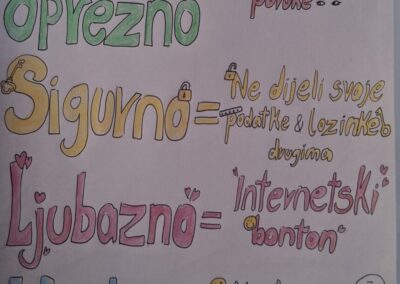 oprezno poruke !!
Sigurno = Ne dijeli svoje
podatke & lozinke
drugima
Ljubazno = "Internetski
bonton"